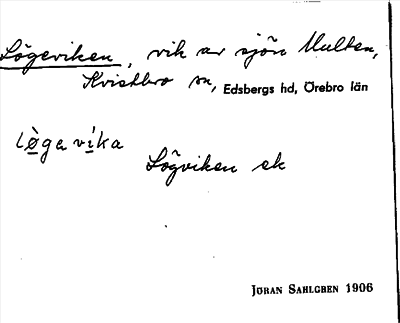 Lögeviken, vik av sjön Multen,
Kvistbro sn, Edsbergs hd, Örebro län
lø̀gavi̇́ka
Lögviken ek
JÖRAN SAHLGREN 1906